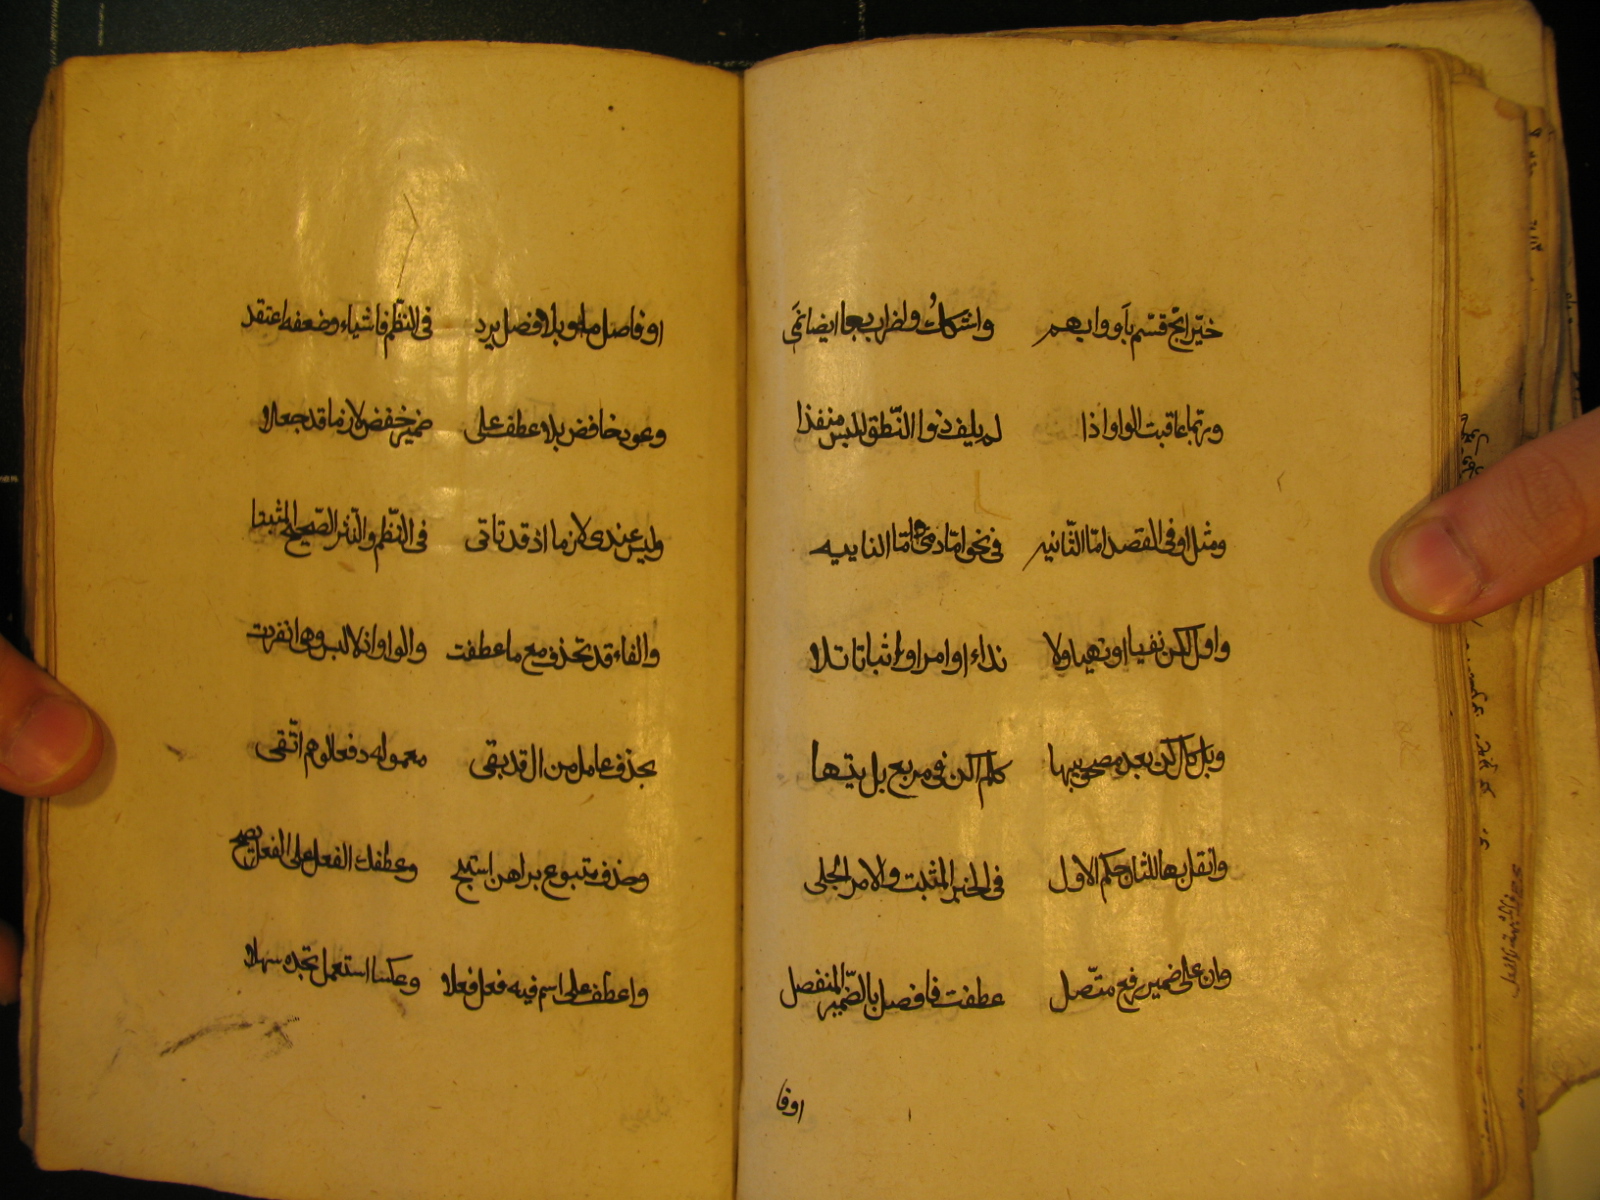 خيّر ابح قسّم باَو وابهم واشكك واضراب بها ايضا نمَى
وربّما عاقبت الواو اذا لم يلف ذوا النّطق للبس منفذا
ومثل او فى القصد امّا الثّانيه فى نحو امّا ذى وامّا النائيه
واول لكن نفيا او نهيا ولا نداء او امرا او اثباتا تلا
وبل كلكن بعد مصحوبيها كلم اكن فى مربع بل يتها
وانقل بها للثان حكم الاول فى الخبر المثبت والامر الجلى
وان على ضمير رفع متّصل عطفت فافصل بالضّمير المنفصل
اوفا
او فاصل ما وبلا فصل يرد فى النّظم فاشياء وضعفه اعتقد
وعود خافض بلا عطف على ضمير خفض لازما قد جعلا
وليس عندى لازما اذ قد تاتى فى النّظم والنّثر الصّحيح المثبتا
والفاء قد تحذف مع ما عطفت والواو اذ لا لبس وهى انفردت
بحذف عامل من ال قد بقى معموله دفعا لوهم اتّقى
وحذف متبوع براهن استبح وعطفك الفعل على الفعل يصح
واعطف على اسم فيه فعل فعلا وعكسا استعمل تجده سهلا